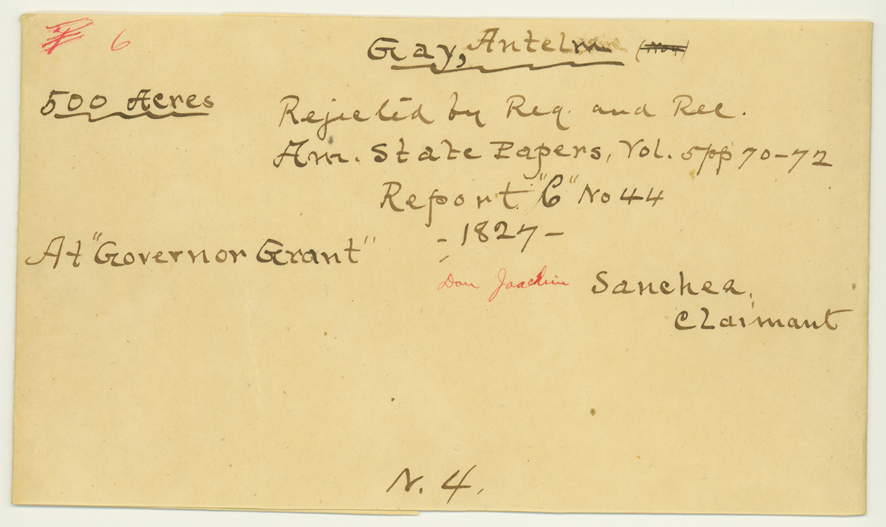 6
Gay, Antelm
500 Acres
Rejected by Reg. and Rec.
Am. State Papers, Vol. 5 pp 70-72
Report "C" No 44
- 1827 -
At "Governor Grant"
Don Joachim Sanchez,
Claimant
N. 4.